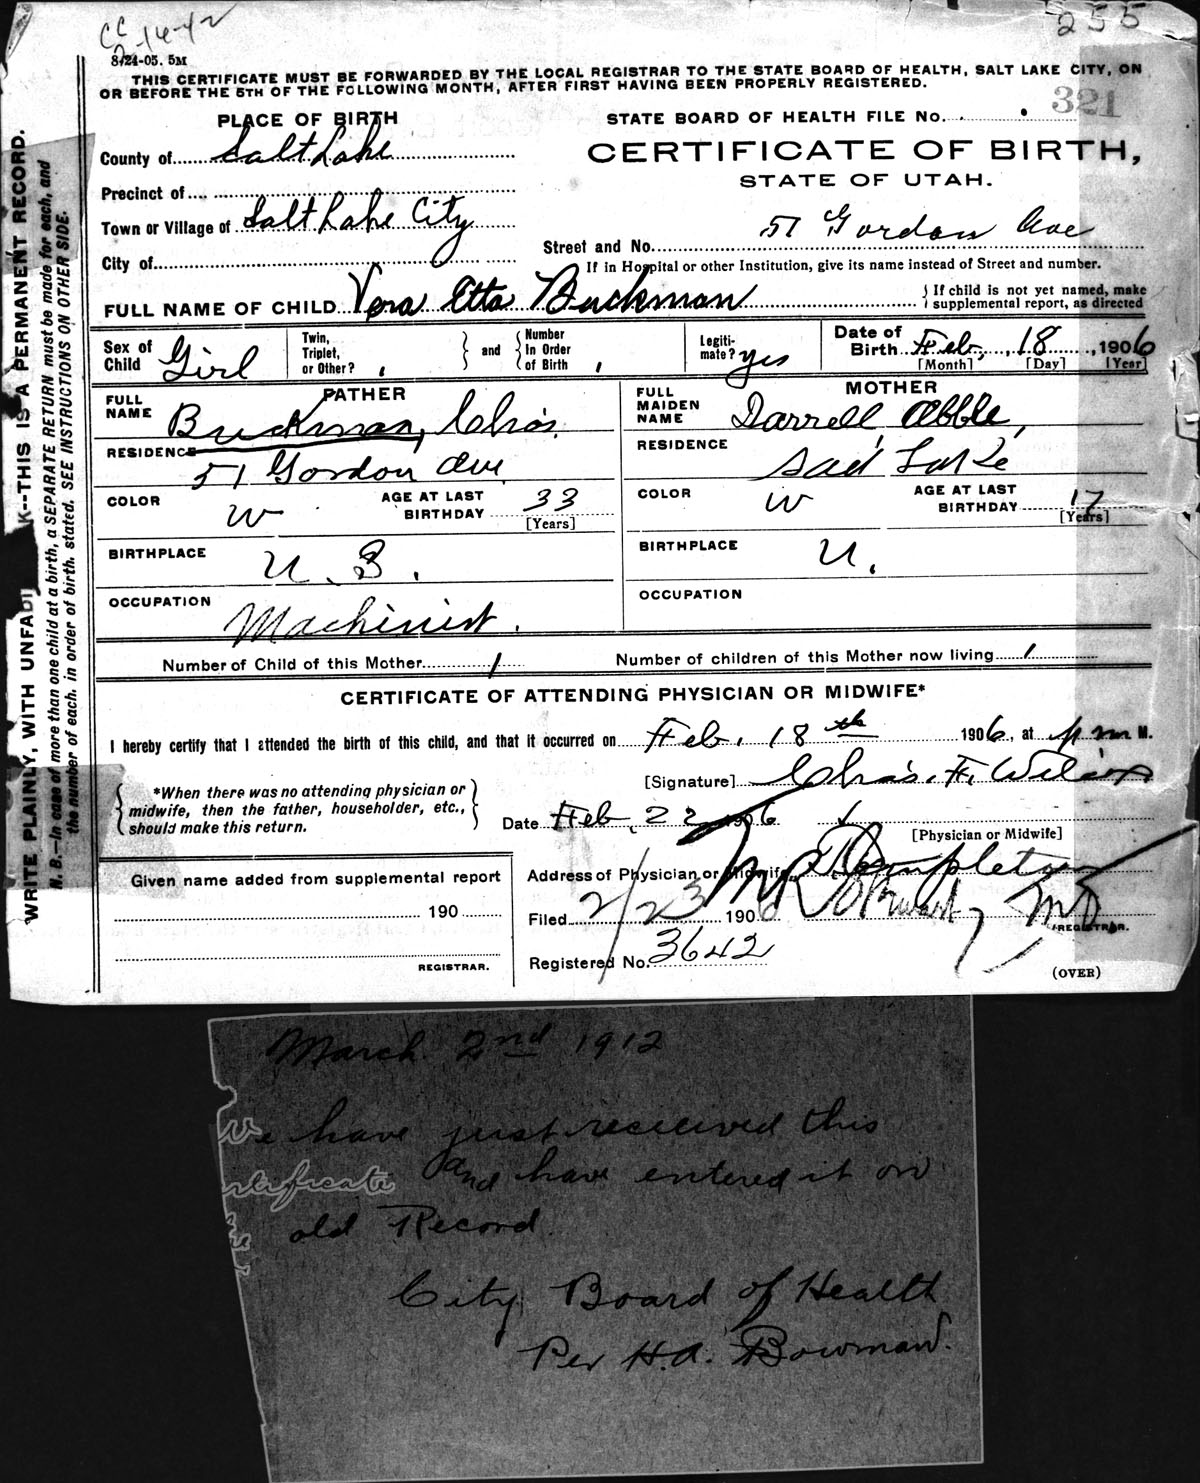 CC
2-14-42
255
8/24-05. 5M
THIS CERTIFICATE MUST BE FORWARDED BY THE LOCAL REGISTRAR TO THE STATE BOARD OF HEALTH, SALT LAKE CITY, ON
OR BEFORE THE 5TH OF THE FOLLOWING MONTH, AFTER FIRST HAVING BEEN PROPERLY REGISTERED.
321
PLACE OF BIRTH
STATE BOARD OF HEALTH FILE No.
County of Salt Lake
CERTIFICATE OF BIRTH,
STATE OF UTAH.
Precinct of
Town or Village of Salt Lake City
Street and No. 57 Gordon Ave
City of
If in Hospital or other Institution, give its name instead of Street and number.
FULL NAME OF CHILD Vera Etta Buckman
{If child is not yet named, make
supplemental report, as directed
Sex of Child Girl
Twin, Triplet, or Other?
and
Number In Order of Birth
Legiti-mate? yes
Date of Birth Feb. 18, 1906
[Month] [Day] [Year]
FATHER
MOTHER
FULL NAME Buckman, Chas.
FULL MAIDEN NAME Darrell Abble,
RESIDENCE
51 Gordon Ave
RESIDENCE
Lake
COLOR W
AGE AT LAST BIRTHDAY 33
[Years]
COLOR W
AGE AT LAST BIRTHDAY 17
[Years]
BIRTHPLACE U.S.
BIRTHPLACE U.
OCCUPATION Machinist.
OCCUPATION
Number of Child of this Mother 1
Number of children of this Mother now living 1
CERTIFICATE OF ATTENDING PHYSICIAN OR MIDWIFE*
I hereby certify that I attended the birth of this child, and that it occurred on Feb. 18th 1906, at pm M.
[Signature] Chas. F. Wilcox
*When there was no attending physician or
midwife, then the father, householder, etc.,
should make this return.
Date Feb. 22 1906
[Physician or Midwife]
Address of Physician or Midwife Templeton
Given name added from supplemental report
190
Filed 2/23 1906 Stewart, MD
REGISTRAR.
Registered No. 3642
REGISTRAR.
(OVER)
WRITE PLAINLY, WITH UNFADI K--THIS IS A PERMANENT RECORD.
N. B.—In case of more than one child at a birth, a SEPARATE RETURN must be made for each, and
the number of each, in order of birth, stated. SEE INSTRUCTIONS ON OTHER SIDE.
March 2nd 1912
We have just receieved this
certificate and have entered it on
old Record
City Board of Health
Per H.A. Bowman.